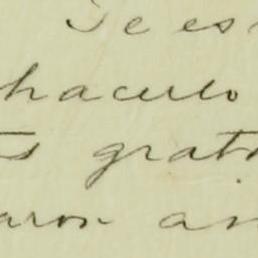 Te es
hacerlo
s grat
aron an